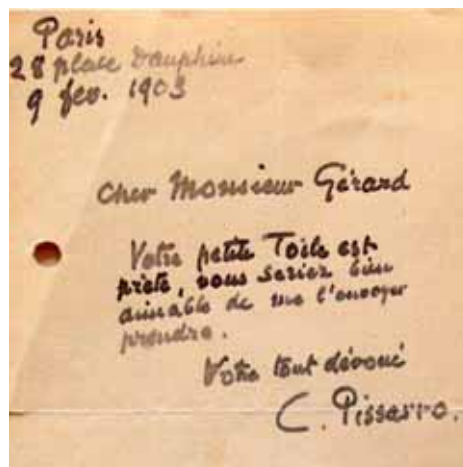 Paris
28 place Dauphine
9 fev. 1903
Cher Monsieur Gérard
Votre petite Toile est
prête, vous seriez bien
aimable de me l'envoyer
prendre.
Votre tout dévoué
C. Pissarro.